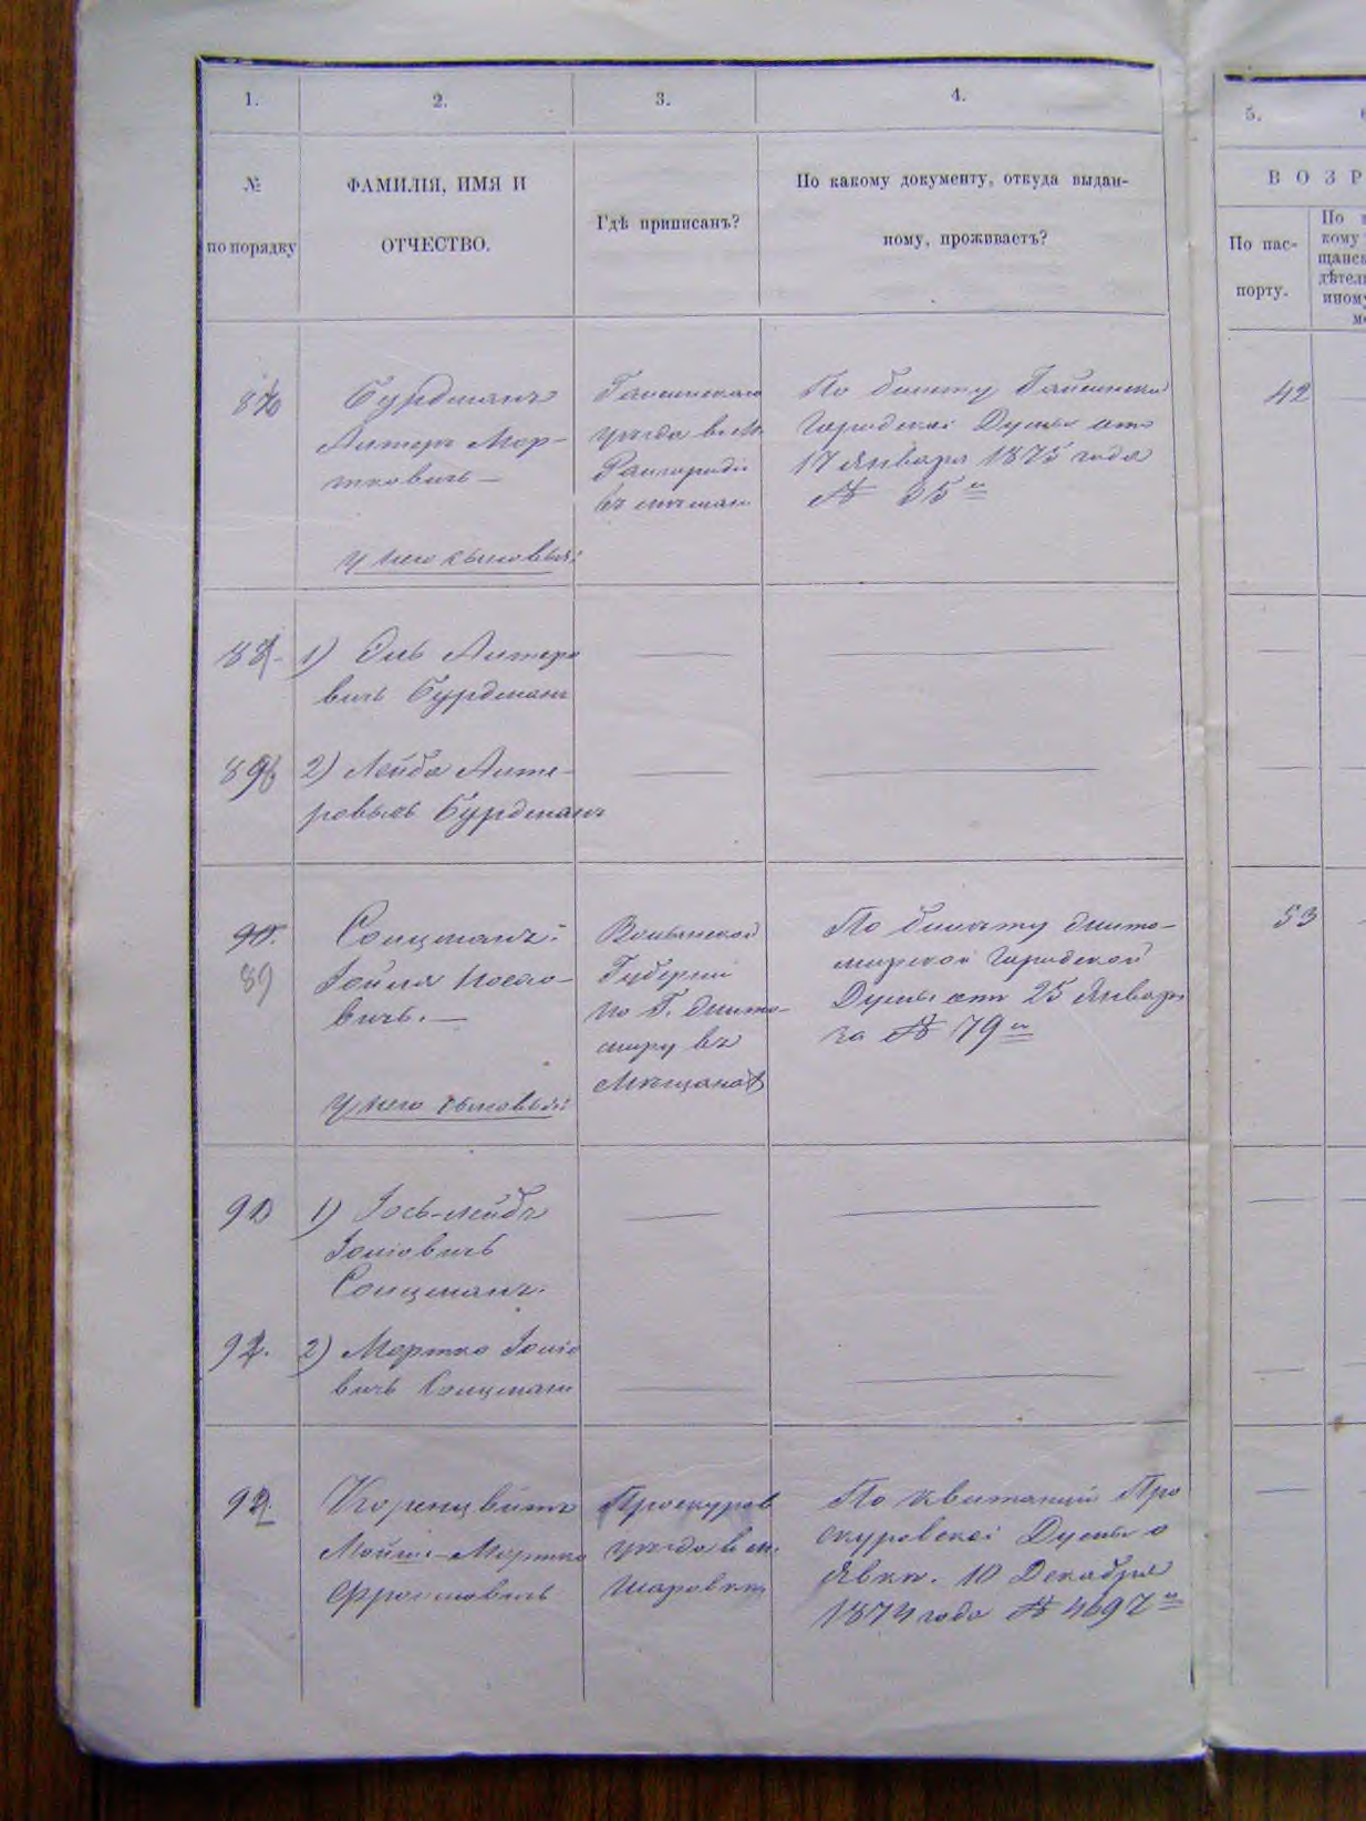 1.
2.
3.
4.
5.
№
по порядку
ФАМИЛІЯ, ИМЯ И
ОТЧЕСТВО.
Гдѣ приписанъ?
По какому документу, откуда выдан-
ному, проживаетъ?
ВОЗР
По пас-
порту.
Бурдманъ
Литеръ Мор-
тковичъ —
у него сыновья:
Гайсинскаго
уѣзда в. м.
По билету Гайсинской
Городской Думы отъ
17 Января 1875 года
№ 35
42
1) Эль Литеро
вичъ Бурдманъ
2) Лейба Лите-
ровичъ Бурдманъ
90.
89
Солцманъ
Іойля Іосіо-
вичъ. —
у него сыновья:
Волынской
Губерніи
по Г. Жито-
миру въ
Мѣщанахъ
По билету Жито-
мирской Городской
Думы отъ 25 Января
за № 79
53
1) Іось-Лейбъ
Іоиловичъ
Солцманъ.
2) Мортко Іоило
вичъ Солцманъ
Мойше-Мортко
Фроимовичъ
Проскуров
уѣзда в м.
Шаровкѣ
По квитанціи Про
скуровской Думы о
явкѣ. 10 Декабря
1874 года № 4697